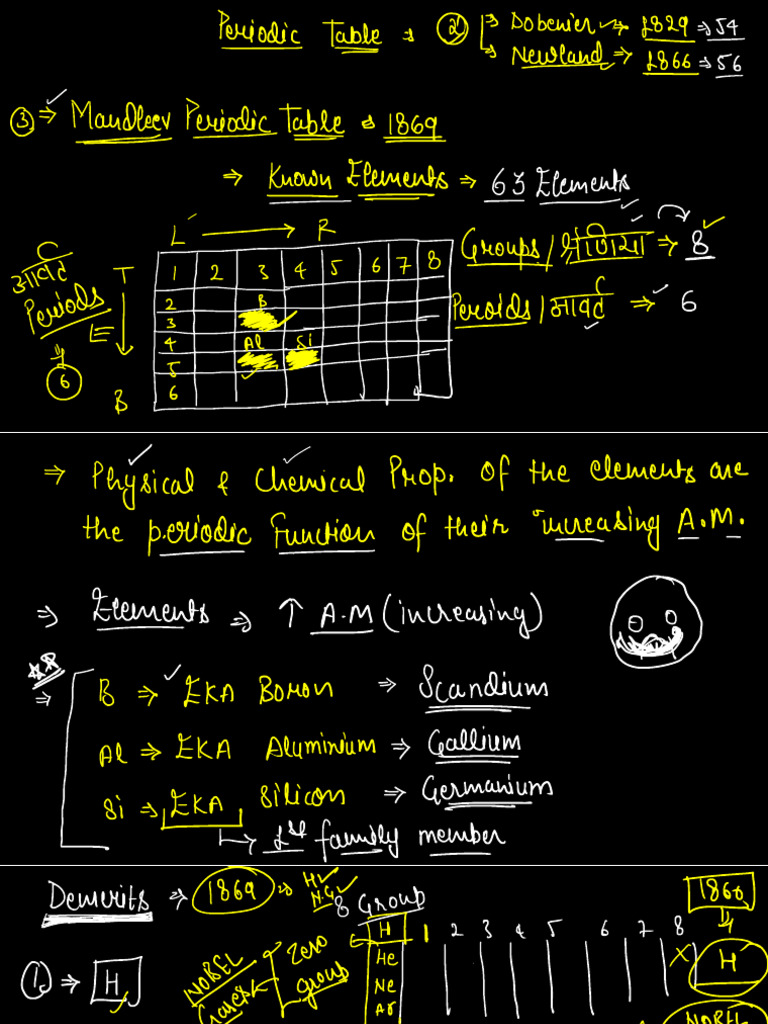 Periodic Table → ② → Dobenier → 1829 → 54
→ Newland → 1866 → 56
③ → Mandleev Periodic Table → 1869
→ Known Elements → 63 Elements
L → R
Groups/श्रेणिया → 8
Peroids/आवर्त → 6
आवर्त
Periods
6
T
B
1 2 3 4 5 6 7 8
2 B
3
4 Al Si
5
6
⇒ Physical & Chemical Prop. of the elements are
the periodic Function of their increasing A.M.
⇒ Elements ⇒ ↑ A.M (increasing)
⇒ B ⇒ EKA Boron ⇒ Scandium
Al ⇒ EKA Aluminium ⇒ Gallium
Si ⇒ EKA Silicon ⇒ Germanium
→ 1st family member
Demerits ⇒ 1869 ⇒ H
N.G
8 Group
1866
① ⇒ H
NOBEL
Gases
Zero
group
H 1 2 3 4 5 6 7 8
He
Ne
Ar
X H
NOBEL